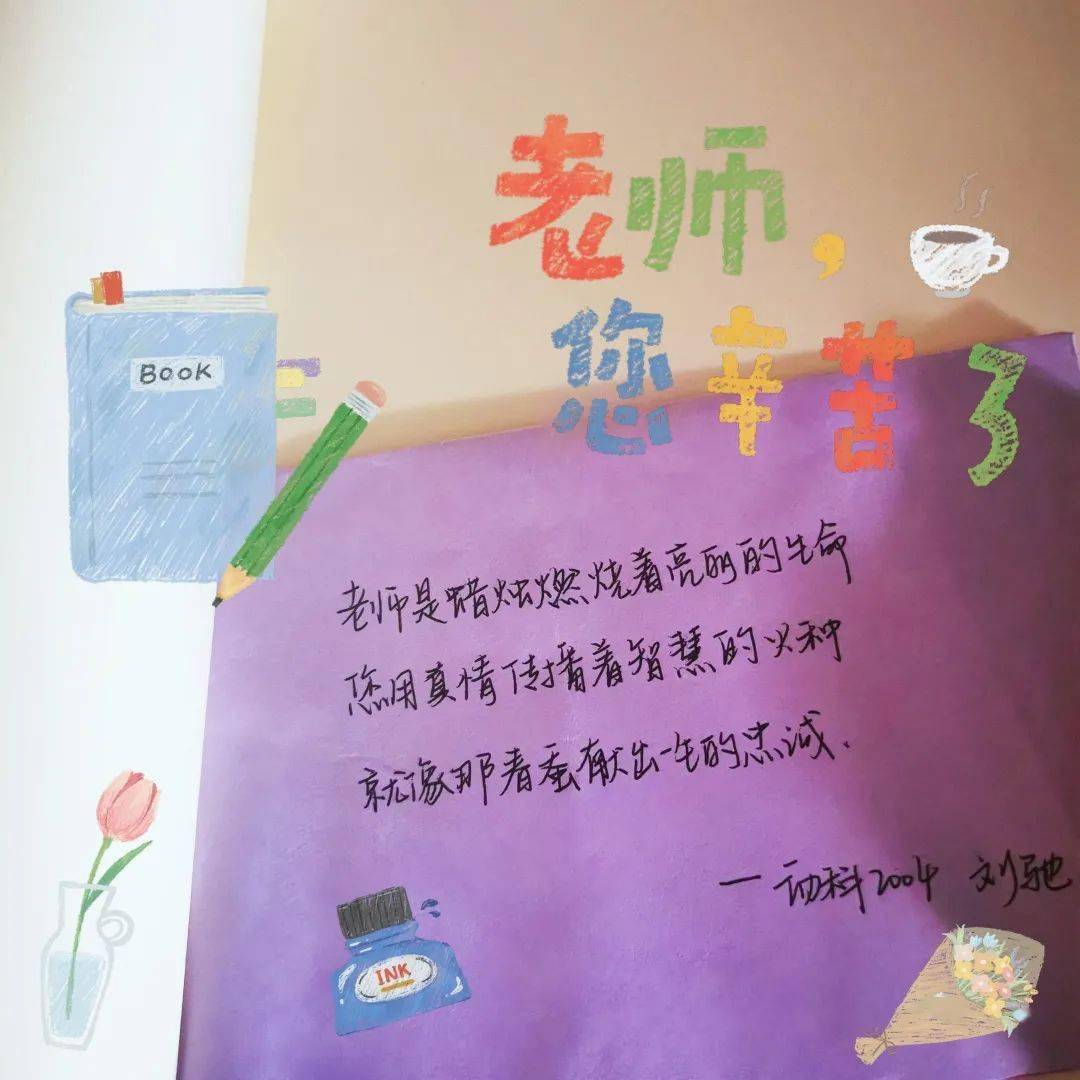 老师,
您辛苦了
BOOK
老师是蜡烛燃烧着亮丽的生命
您用真情传播着智慧的火种
就像那春蚕献出一生的忠诚.
一动科2004 刘驰
INK